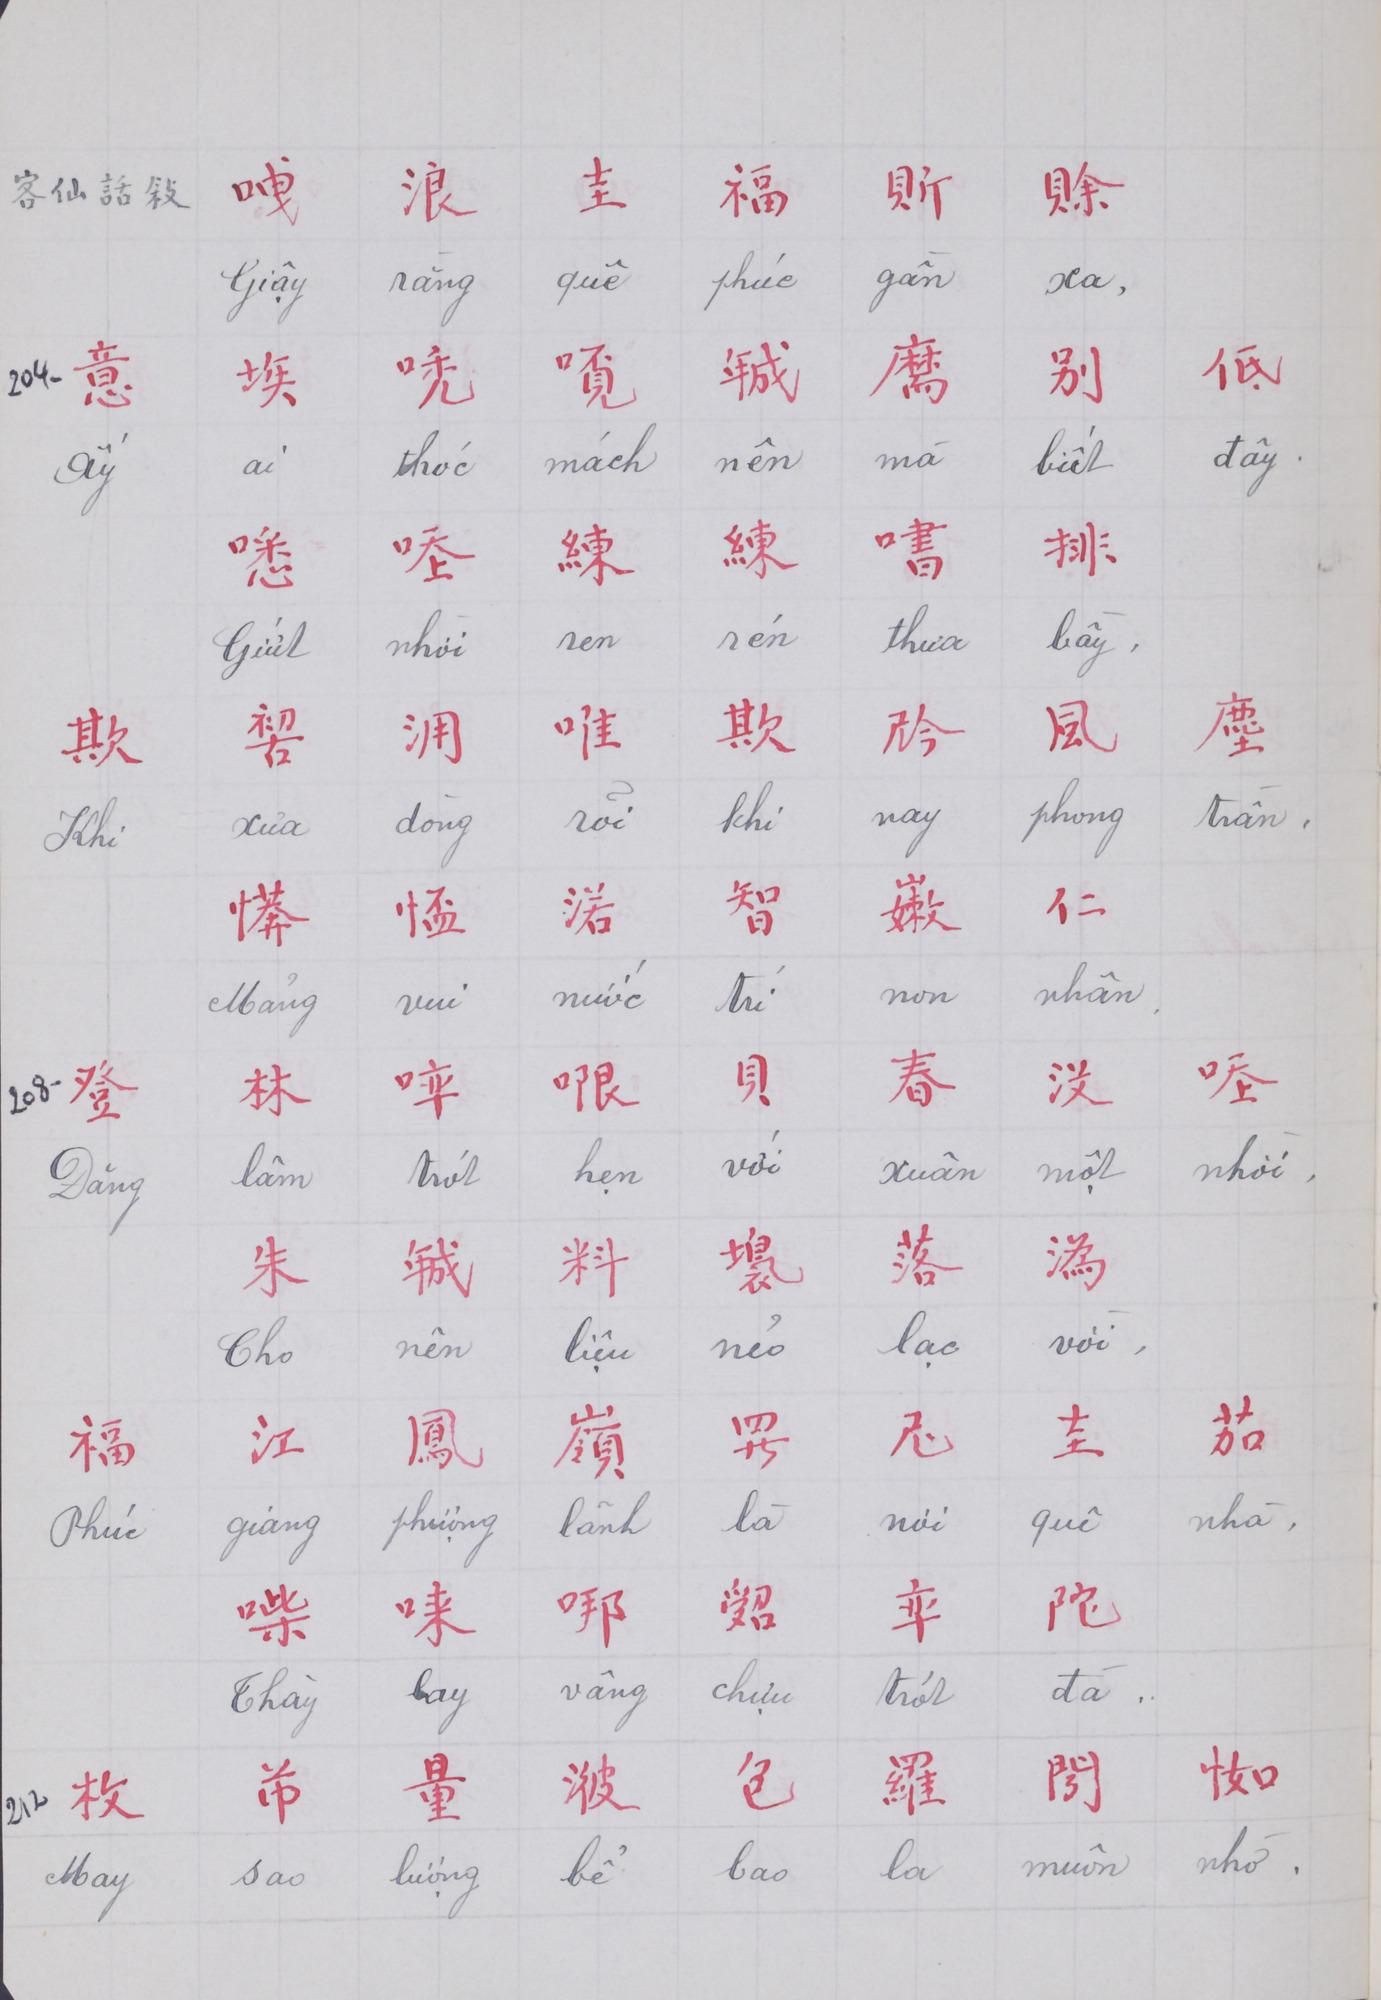 客仙話敍 㖂 浪 圭 福 𧵆 賒
Giậy rằng quê phúc gần xa,
204- 意 埃 唀 𠹽 𢧚 麿 别 低
Ấy ai thóc mách nên mà biết đây.
𠽖 𠱤 練 練 𠽔 排
Giứt nhời ren rén thưa bầy,
欺 𠸗 㳥 唯 欺 𫢩 風 塵
Khi xưa dòng rõi khi nay phong trần,
㦄 𢝙 渃 智 𡽫 仁
Mảng vui nước trí non nhân,
208- 登 林 啐 㗃 貝 春 没 𠱤
Đăng lâm trót hẹn với xuân một nhời,
朱 𢧚 料 𡑖 落 潙
Cho nên liệu nẻo lạc vời,
福 江 鳳 嶺 𱺵 尼 圭 茄
Phúc giang phượng lãnh là nơi quê nhà,
喍 唻 𠳐 𠹾 卒 陀
Thày lay vâng chịu trót đà..
212 枚 𡗂 量 𣷷 包 羅 閍 㤞
May sao lượng bể bao la muôn nhờ.